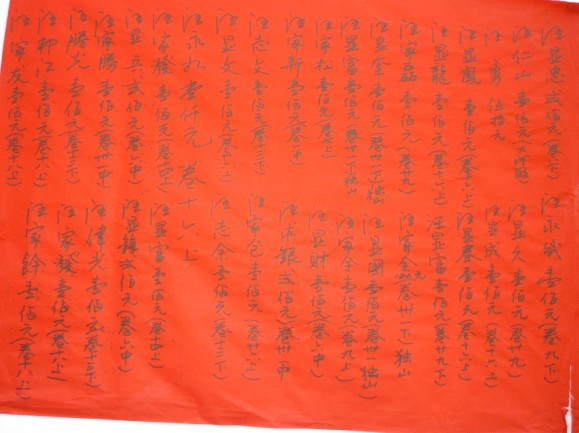 汪显忠贰佰元(卷六下)
汪仁山壹佰元
汪勇 伍拾元
汪显凤壹佰元(卷十六上)
汪显龍壹佰元(卷十六上)
汪家磊壹佰元(卷廿九)
汪显奎壹佰元(卷卅一下独山)
汪显富壹佰元(卷卅一下独山)
汪家松壹佰元(卷七上)
汪家新壹佰元
汪志文壹佰元(卷十三下)
汪显文壹佰元
汪永红壹仟元 卷十六上
汪家發壹佰元
汪显兵贰佰元(卷六中)
汪家勝壹佰元(卷卅一中)
汪勝光壹佰元(卷十三下)
汪柳江壹佰元(卷十八上)
汪家友壹佰元(卷十八上)
汪永斌壹佰元(卷九下)
汪显久壹佰元(卷十九)
汪显成壹佰元(卷十六上)
汪显春壹佰元(卷十六上)
汪显富壹佰元(卷廿九下)
汪家 元(卷卅一下)独山
汪显国壹佰元(卷卅一独山)
汪家全壹佰元(卷九上)
汪显财壹佰元(卷七中)
汪术银贰佰元(卷卅中
汪家仓壹佰元(卷廿六上)
汪志伞壹佰元(卷十三下)
汪显富壹佰元
汪显镇贰佰元(卷六中)
汪偉光壹佰元(卷十三下)
汪家發壹佰元(卷十八上)
汪家餘壹佰元(卷十八上)